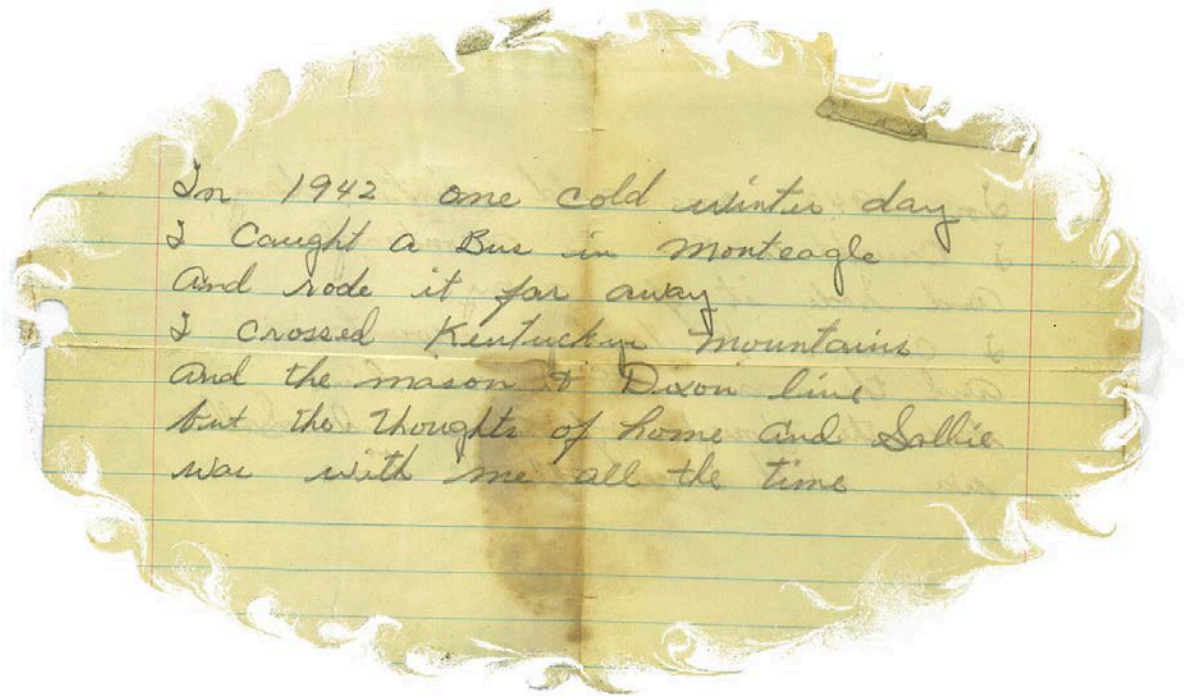 In 1942 one cold winter day
I Caught a Bus in Monteagle
And rode it far away
I crossed Kentuckey Mountains
And the mason & Dixon line
but the thoughts of home and Sallie
was with me all the time